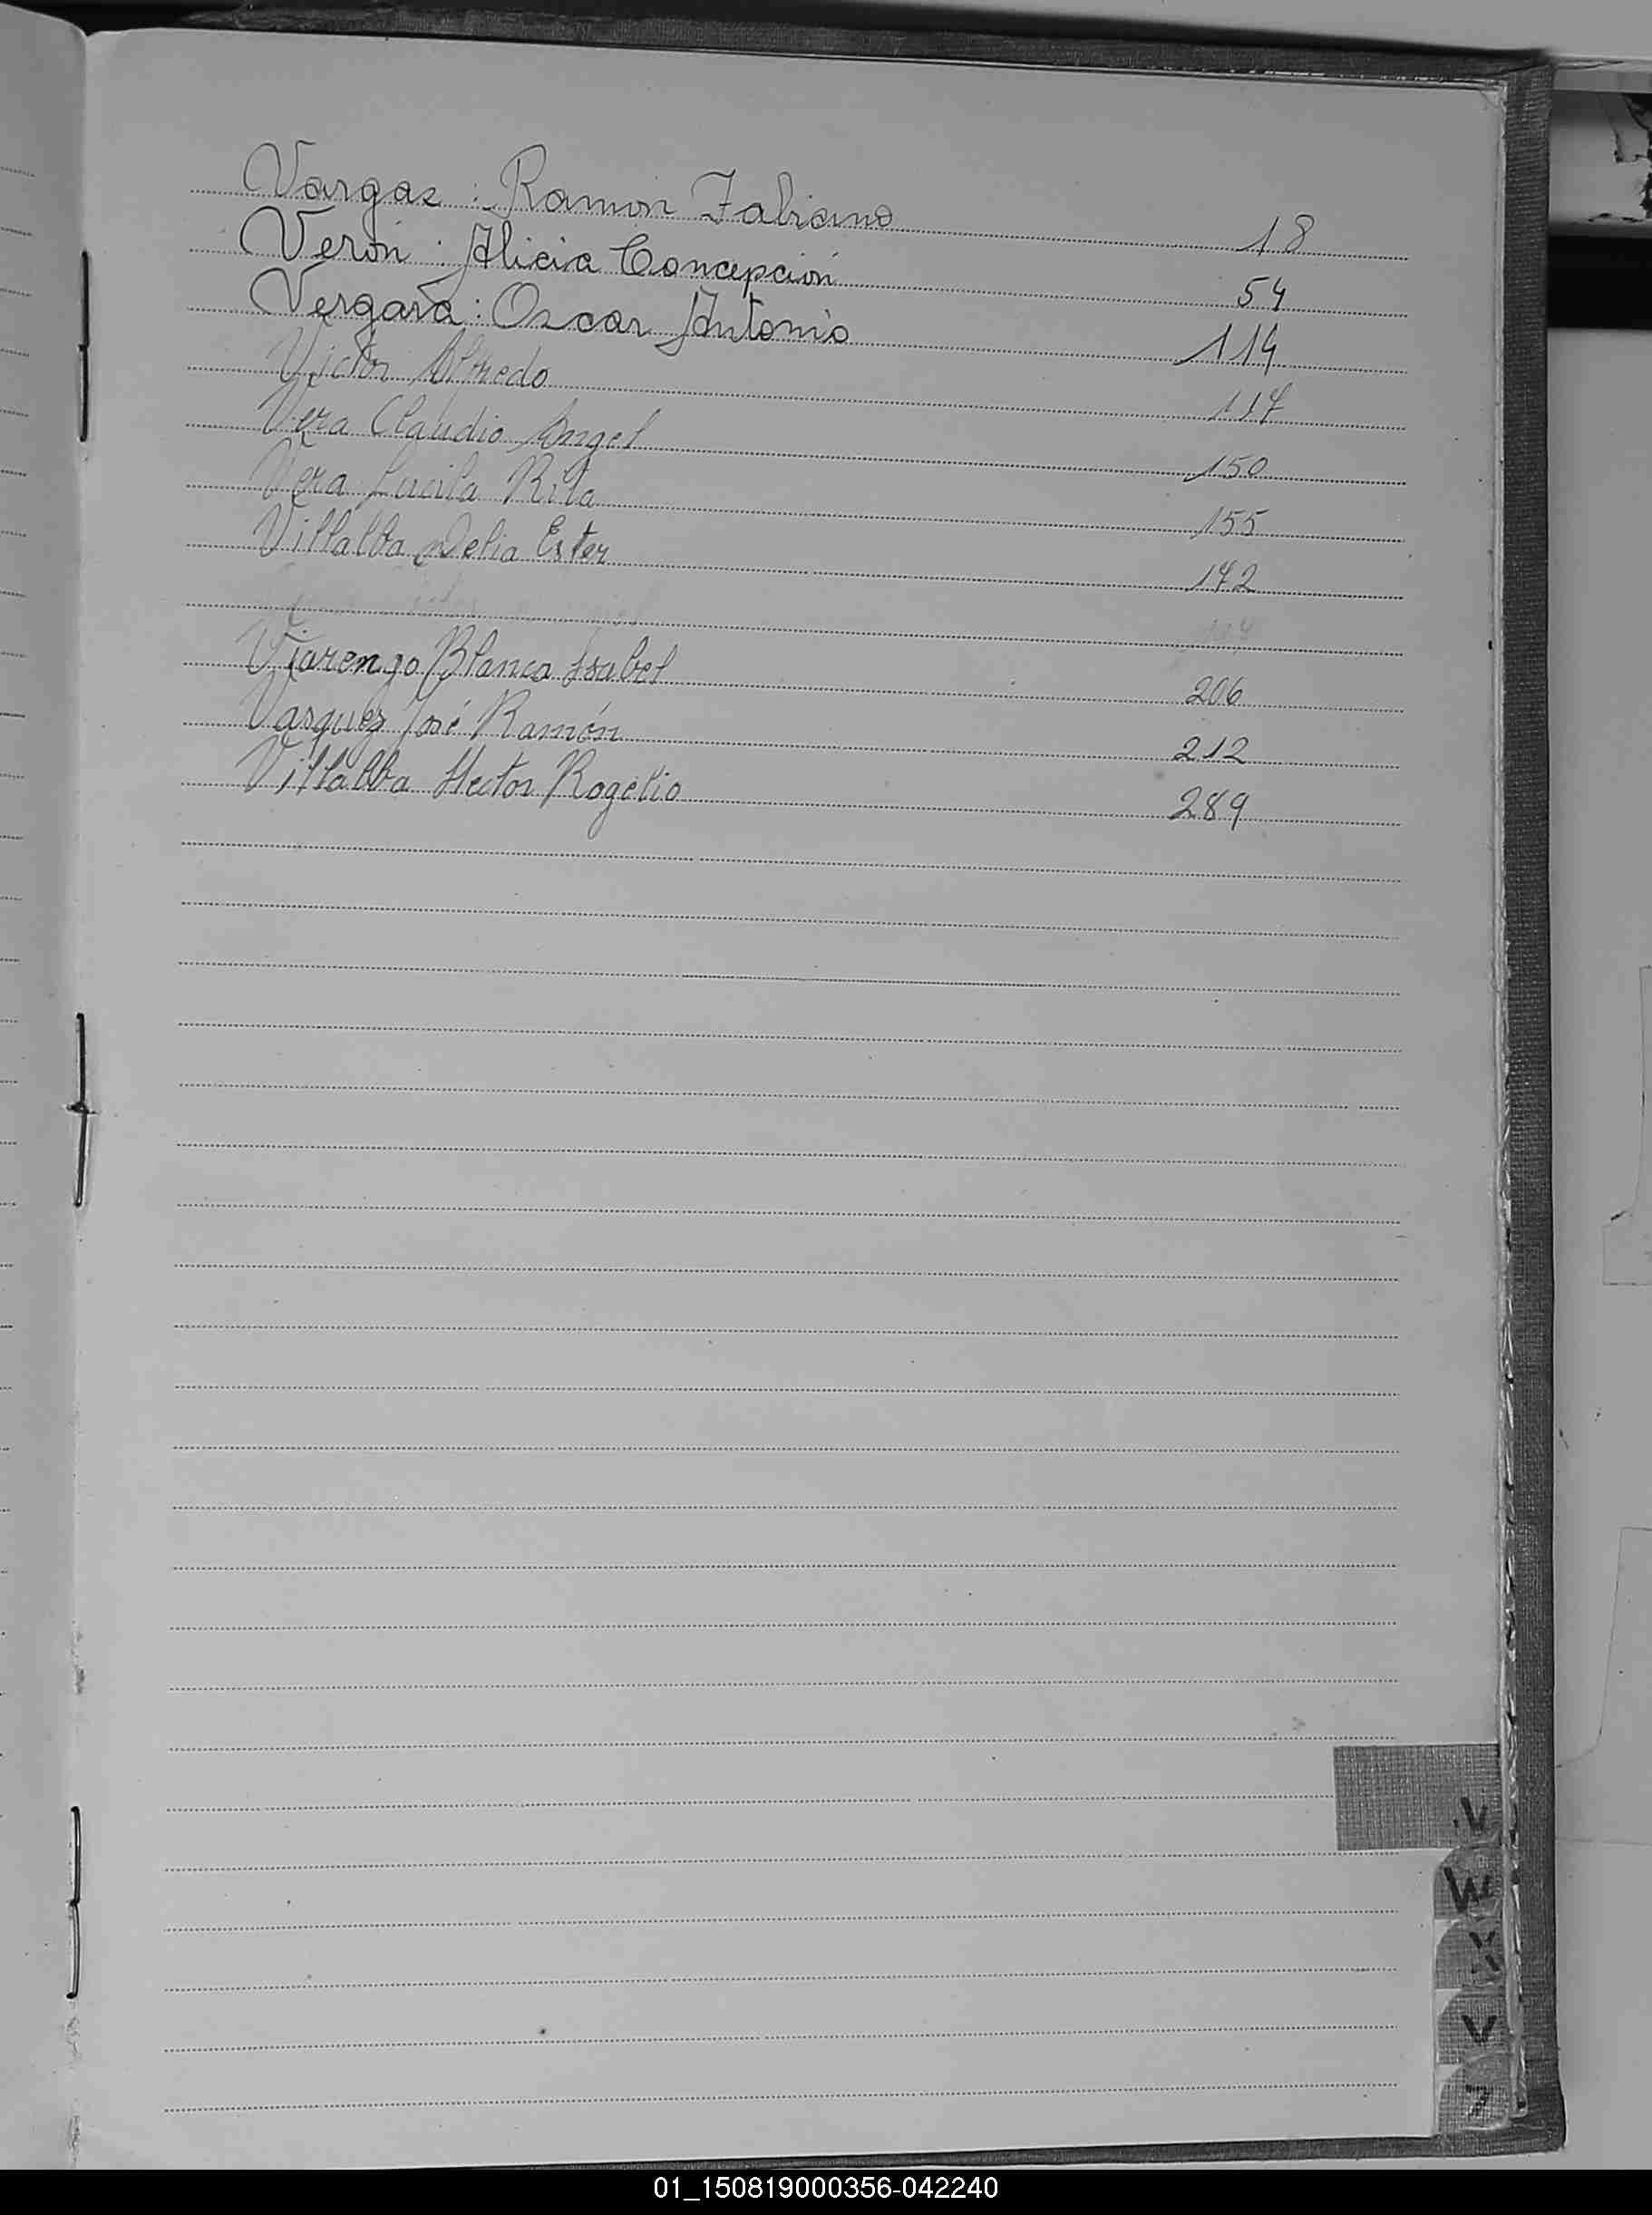 Vargas : Ramón Fabiano 18
Verón : Alicia Concepción 54
Vergara : Oscar Antonio 114
Victor Alfredo 117
Vera Claudio Angel 150
Vera Lucila Rita 155
Villalba Delia Ester 172
Viarengo Blanca Isabel 206
Vasquez José Ramón 212
Villalba Hector Rogelio 289
V
W
V
Z
01_150819000356-042240